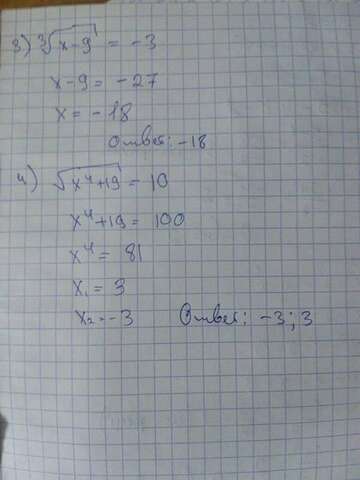 3) ∛(x-9) = -3
x-9 = -27
x = -18
Ответ: -18
4) √(x⁴+19) = 10
x⁴+19 = 100
x⁴ = 81
x₁ = 3
x₂ = -3 Ответ: -3; 3